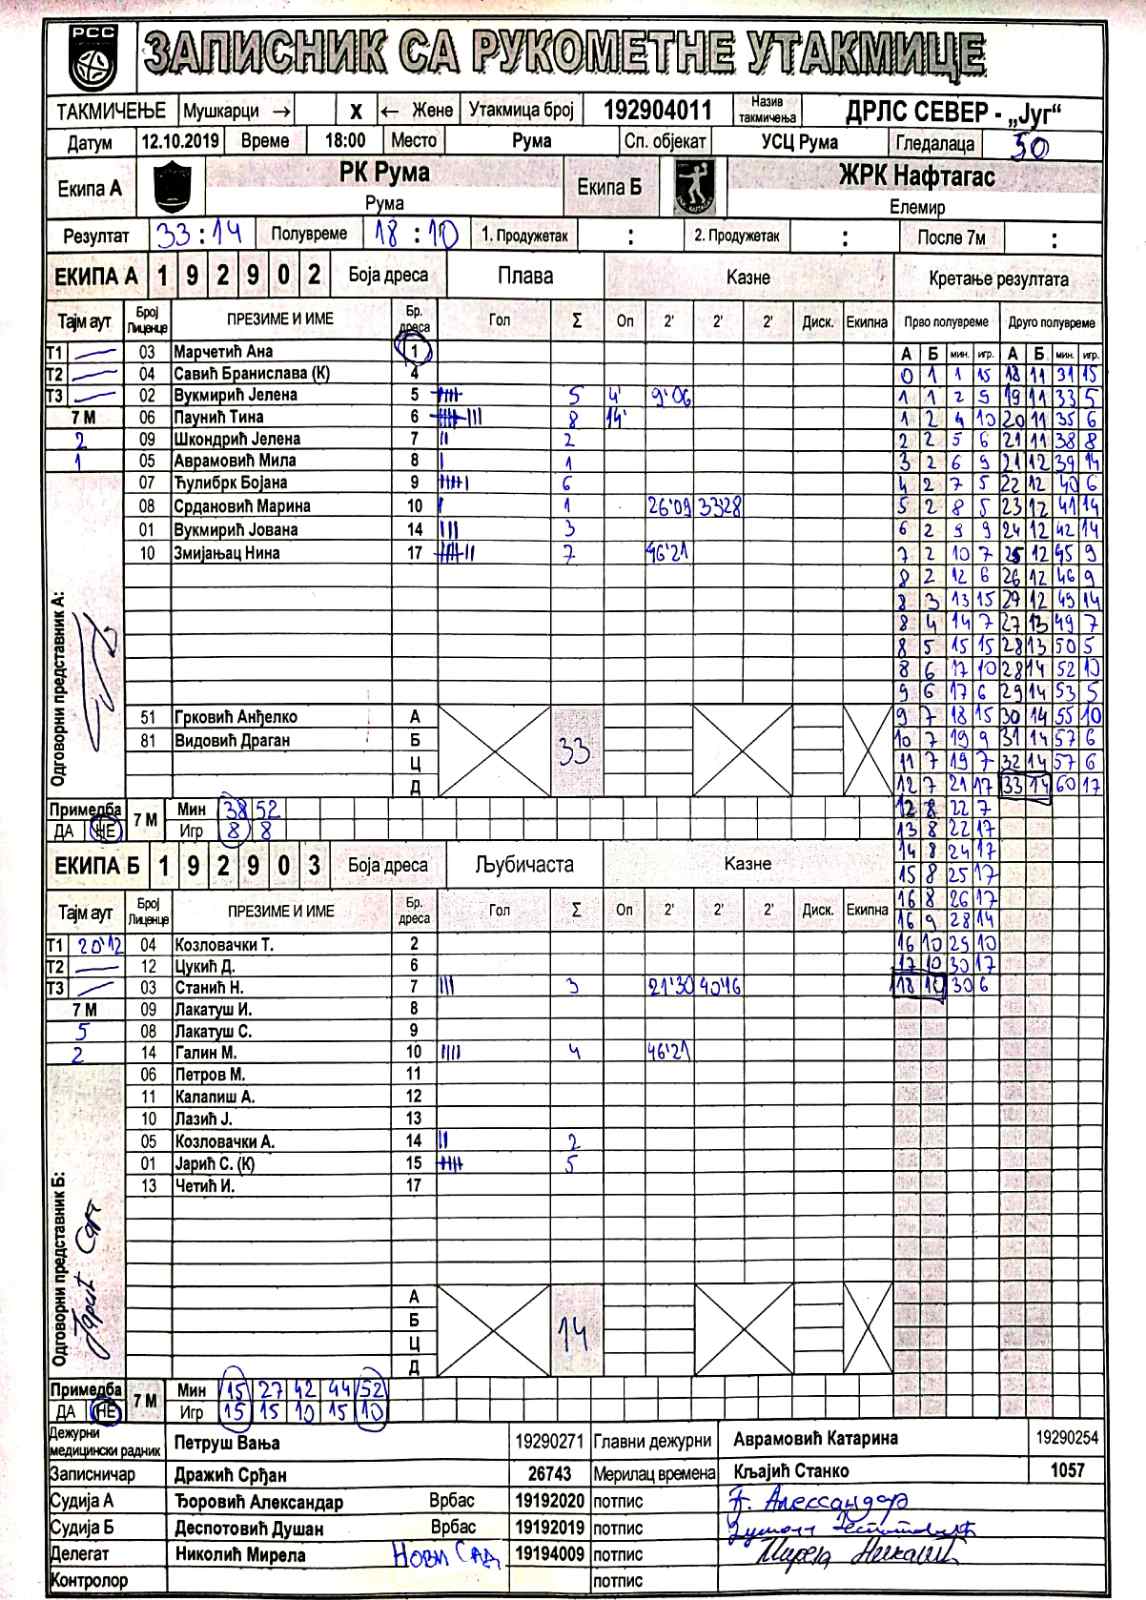 РСС
ЗАПИСНИК СА РУКОМЕТНЕ УТАКМИЦЕ
ТАКМИЧЕЊЕ Мушкарци → X ← Жене Утакмица број 192904011 Назив такмичења ДРЛС СЕВЕР - „Југ“
Датум 12.10.2019 Време 18:00 Место Рума Сп. објекат УСЦ Рума Гледалаца 50
Екипа А РК Рума Екипа Б ЖРК Нафтагас
Рума Елемир
Резултат 33:14 Полувреме 18:10 1. Продужетак : 2. Продужетак : После 7м :
ЕКИПА А 1 9 2 9 0 2 Боја дреса Плава Казне Кретање резултата
Тајм аут Број Лиценце ПРЕЗИМЕ И ИМЕ Бр. дреса Гол Σ Оп 2' 2' 2' Диск. Екипна Прво полувреме Друго полувреме
Т1 03 Марчетић Ана 1 А Б мин. игр. А Б мин. игр.
Т2 04 Савић Бранислава (К) 4 0 1 1 15 18 11 31 15
Т3 02 Вукмирић Јелена 5 5 4' 9'06 1 1 2 5 19 11 33 5
7 М 06 Паунић Тина 6 8 14' 1 2 4 10 20 11 35 6
2 09 Шкондрић Јелена 7 2 2 2 5 6 21 11 38 8
1 05 Аврамовић Мила 8 1 3 2 6 9 21 12 39 14
07 Ћулибрк Бојана 9 6 4 2 7 5 22 12 40 6
08 Срдановић Марина 10 1 26'09 33'28 5 2 8 5 23 12 41 14
01 Вукмирић Јована 14 3 6 2 9 9 24 12 42 14
10 Змијањац Нина 17 7 46'21 7 2 10 7 25 12 45 9
8 2 12 6 26 12 46 9
8 3 13 15 27 12 49 14
8 4 14 7 27 13 49 7
8 5 15 15 28 13 50 5
8 6 17 10 28 14 52 10
9 6 17 6 29 14 53 5
51 Грковић Анђелко А 33 9 7 18 15 30 14 55 10
81 Видовић Драган Б 10 7 19 9 31 14 57 6
Ц 11 7 19 7 32 14 57 6
Д 12 7 21 17 33 14 60 17
Одговорни представник А:
Примедба 7 М Мин 38 52 12 8 22 7
ДА НЕ Игр 8 8 13 8 22 17
14 8 24 17
ЕКИПА Б 1 9 2 9 0 3 Боја дреса Љубичаста Казне 15 8 25 17
16 8 26 17
Тајм аут Број Лиценце ПРЕЗИМЕ И ИМЕ Бр. дреса Гол Σ Оп 2' 2' 2' Диск. Екипна 16 9 28 14
Т1 20'12 04 Козловачки Т. 2 16 10 29 10
Т2 12 Цукић Д. 6 17 10 30 17
Т3 03 Станић Н. 7 3 21'30 40'16 18 10 30 6
7 М 09 Лакатуш И. 8
5 08 Лакатуш С. 9
2 14 Галин М. 10 4 46'21
06 Петров М. 11
11 Калапиш А. 12
10 Лазић Ј. 13
05 Козловачки А. 14 2
01 Јарић С. (К) 15 5
13 Четић И. 17
Одговорни представник Б:
А
Б 14
Ц
Д
Примедба 7 М Мин 15 27 42 44 52
ДА НЕ Игр 15 15 10 15 10
Дежурни медицински радник Петруш Вања 19290271 Главни дежурни Аврамовић Катарина 19290254
Записничар Дражић Срђан 26743 Мерилац времена Кљајић Станко 1057
Судија А Ђоровић Александар Врбас 19192020 потпис
Судија Б Деспотовић Душан Врбас 19192019 потпис
Делегат Николић Мирела Нови Сад 19194009 потпис
Контролор потпис